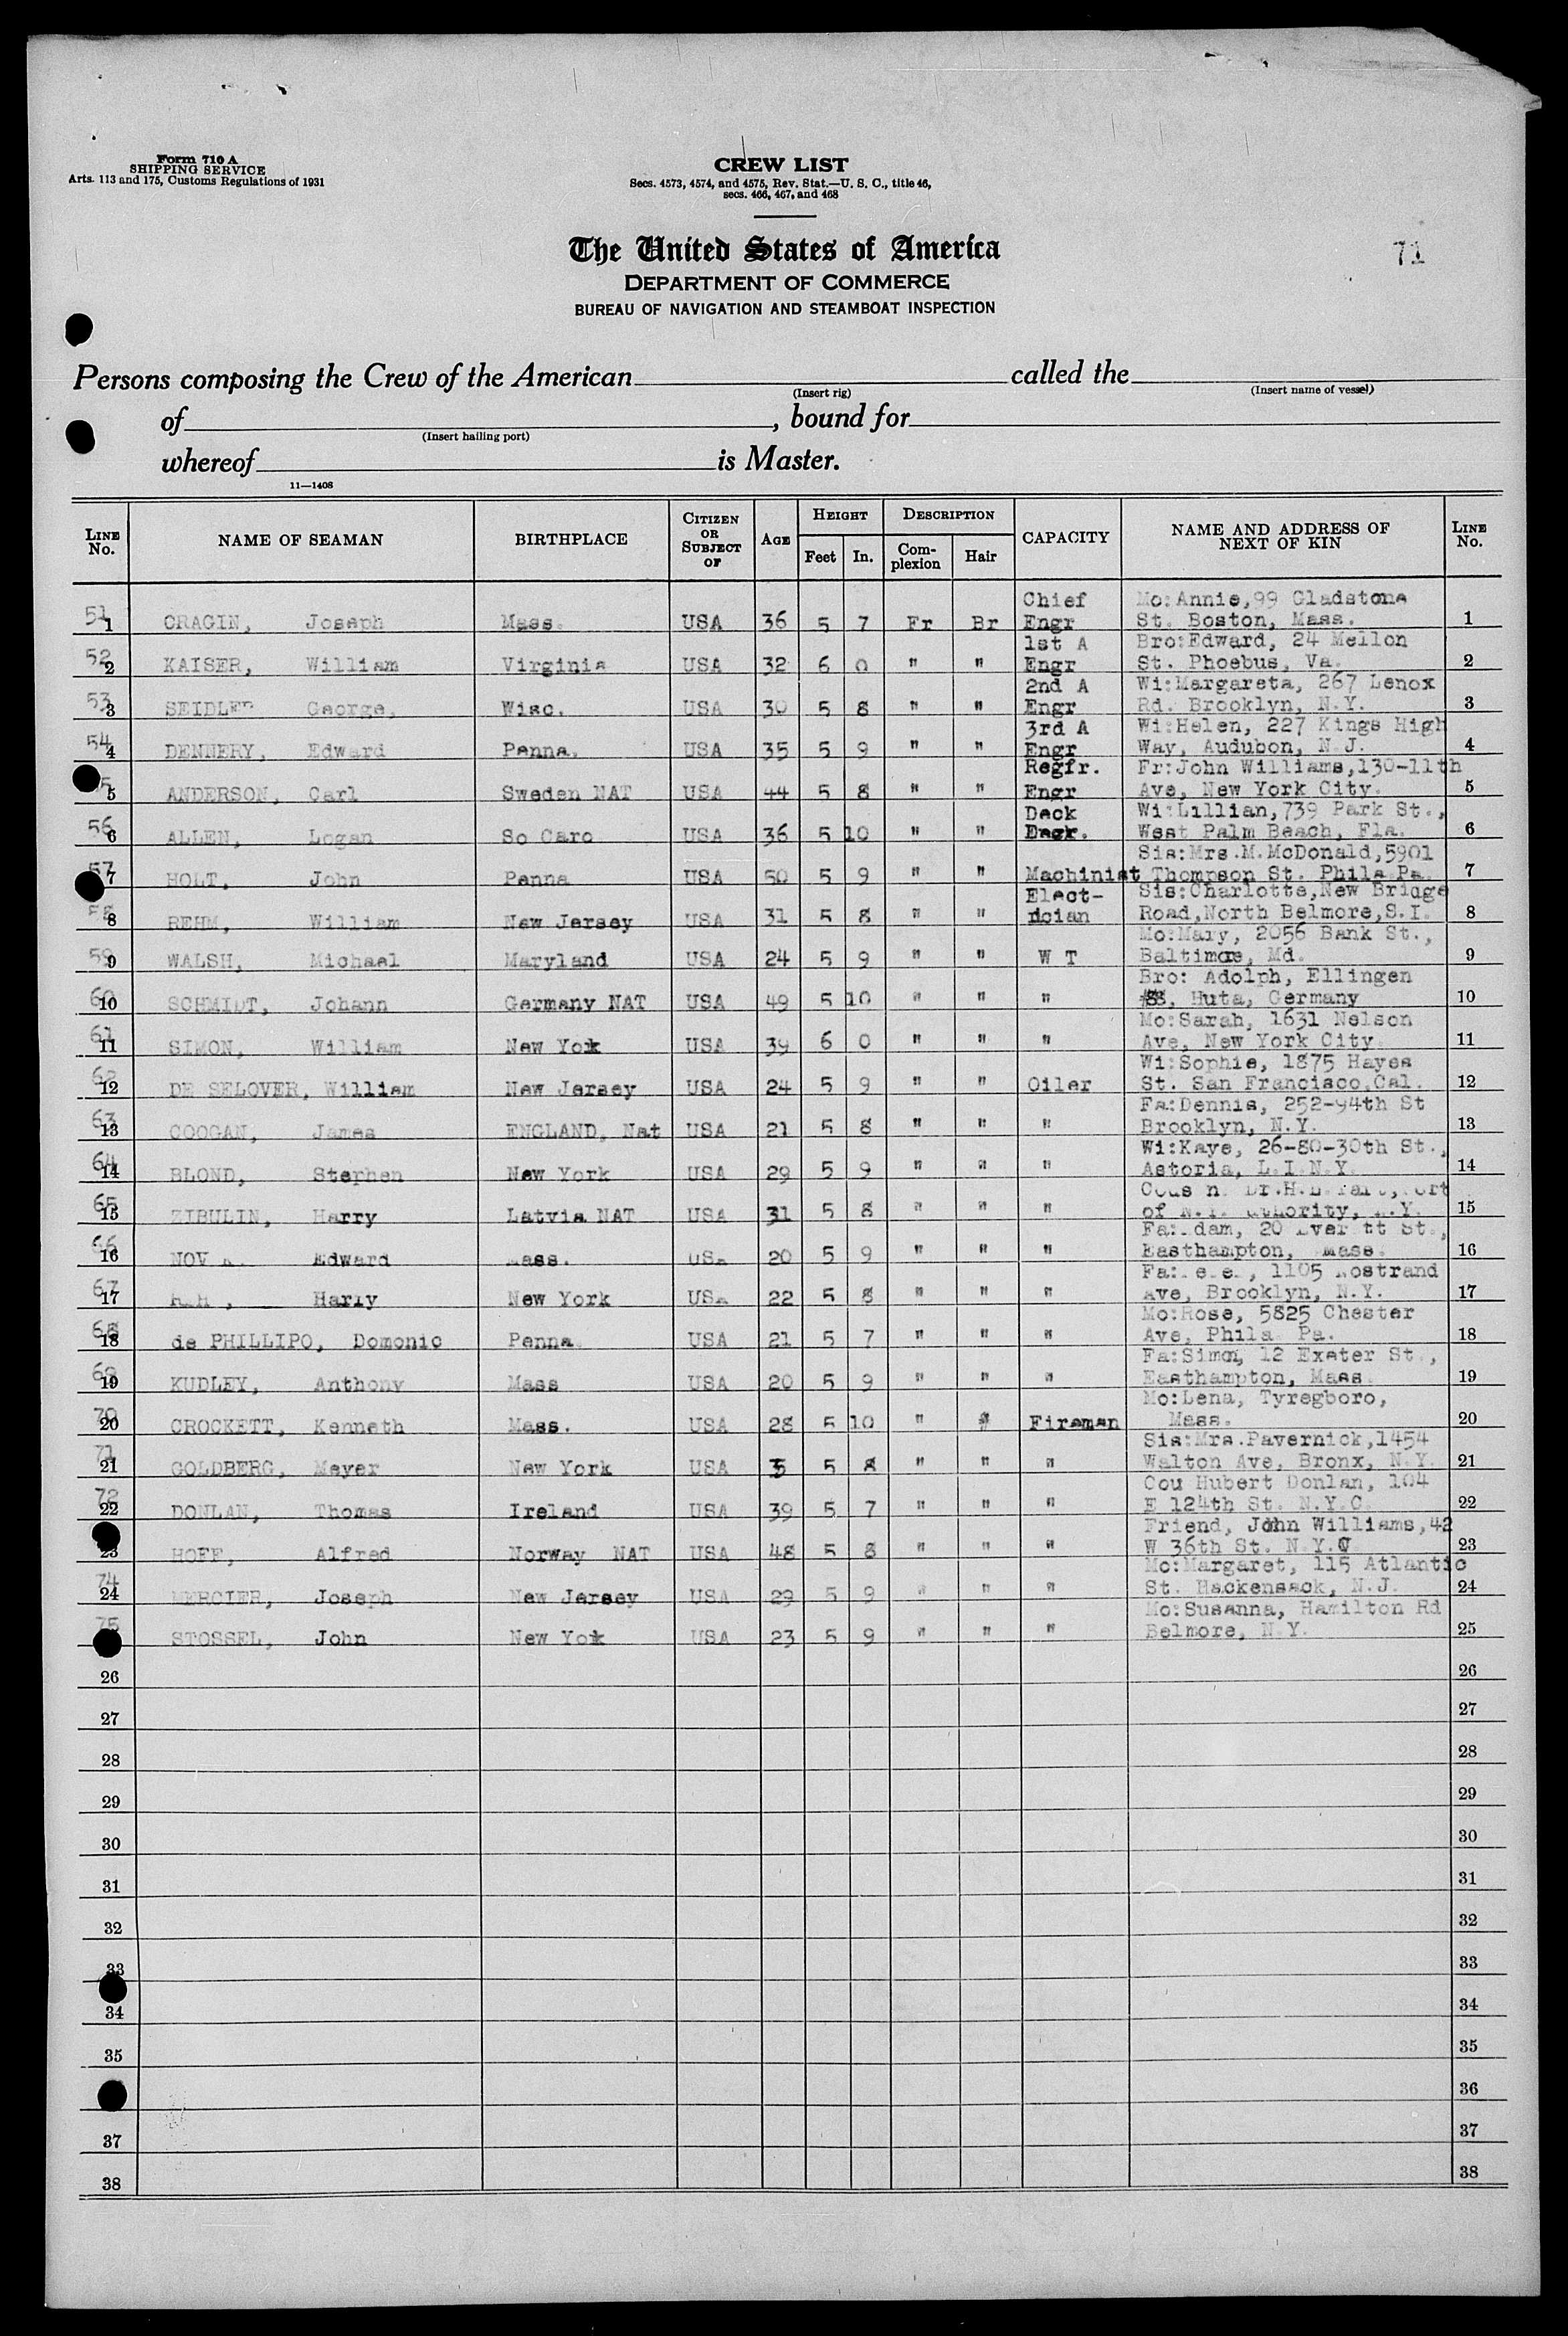 Form 710 A
SHIPPING SERVICE
Arts. 113 and 175, Customs Regulations of 1931
CREW LIST
Secs. 4573, 4574, and 4575, Rev. Stat.—U. S. C., title 46,
secs. 466, 467, and 468
The United States of America
71
DEPARTMENT OF COMMERCE
BUREAU OF NAVIGATION AND STEAMBOAT INSPECTION
Persons composing the Crew of the American called the
(Insert rig) (Insert name of vessel)
of , bound for
(Insert hailing port)
whereof is Master.
11—1408
LINE No. NAME OF SEAMAN BIRTHPLACE CITIZEN OR SUBJECT OF AGE HEIGHT Feet In. DESCRIPTION Com-plexion Hair CAPACITY NAME AND ADDRESS OF NEXT OF KIN LINE No.
Chief Mo:Annie,99 Gladstone
51 1 CRAGIN, Joseph Mass. USA 36 5 7 Fr Br Engr St. Boston, Mass. 1
1st A Bro:Edward, 24 Mellon
52 2 KAISER, William Virginia USA 32 6 0 " " Engr St. Phoebus, Va. 2
2nd A Wi:Margareta, 267 Lenox
53 3 SEIDLER George, Wisc. USA 30 5 8 " " Engr Rd. Brooklyn, N.Y. 3
3rd A Wi:Helen, 227 Kings High
54 4 DENNERY, Edward Penna. USA 35 5 9 " " Engr Way, Audubon, N.J. 4
Regfr. Fr:John Williams,130-11th
5 5 ANDERSON, Carl Sweden NAT USA 44 5 8 " " Engr Ave, New York City. 5
Deck Wi:Lillian,739 Park St.,
56 6 ALLEN, Logan So Caro USA 36 5 10 " " Engr. West Palm Beach, Fla. 6
Sis:Mrs.M.McDonald,5901
57 7 HOLT, John Penna USA 50 5 9 " " Machinist Thompson St. Phila Pa. 7
Elect- Sis:Charlotte,New Bridge
58 8 REHM, William New Jersey USA 31 5 8 " " rician Road,North Belmore,S.I. 8
Mo:Mary, 2056 Bank St.,
59 9 WALSH, Michael Maryland USA 24 5 9 " " W T Baltimore, Md. 9
Bro: Adolph, Ellingen
60 10 SCHMIDT, Johann Germany NAT USA 49 5 10 " " " Huta, Germany 10
Mo:Sarah, 1631 Nelson
61 11 SIMON, William New York USA 39 6 0 " " " Ave, New York City. 11
Wi:Sophie, 1875 Hayes
62 12 DE SELOVER, William New Jersey USA 24 5 9 " " Oiler St. San Francisco,Cal. 12
Fa:Dennis, 252-94th St
63 13 COOGAN, James ENGLAND, Nat USA 21 5 8 " " " Brooklyn, N.Y. 13
Wi:Kaye, 26-80-30th St.,
64 14 BLOND, Stephen New York USA 29 5 9 " " " Astoria, L.I.N.Y. 14
65 15 ZIBULIN, Harry Latvia NAT USA 31 5 8 " " " of N.Y. 15
20 St.,
66 16 Edward Mass. USA 20 5 9 " " " Easthampton, Mass. 16
Fa: 1105 Nostrand
67 17 Harry New York USA 22 5 8 " " " Ave, Brooklyn, N.Y. 17
Mo:Rose, 5825 Chester
68 18 de PHILLIPO, Domonic Penna. USA 21 5 7 " " " Ave, Phila Pa. 18
Fa:Simon, 12 Exeter St.,
69 19 KUDLEY, Anthony Mass USA 20 5 9 " " " Easthampton, Mass. 19
Mo:Lena, Tyregboro,
70 20 CROCKETT, Kenneth Mass. USA 28 5 10 " " Fireman Mass. 20
Sis:Mrs.Pavernick,1454
71 21 GOLDBERG, Meyer New York USA 5 8 " " " Walton Ave, Bronx, N.Y. 21
Cou Hubert Donlan, 104
72 22 DONLAN, Thomas Ireland USA 39 5 7 " " " E 124th St. N.Y.C. 22
Friend, John Williams,42
23 HOFF, Alfred Norway NAT USA 48 5 8 " " " W 36th St. N.Y.C 23
Mo:Margaret, 115 Atlantic
74 24 MERCIER, Joseph New Jersey USA 29 5 9 " " " St. Hackensack, N.J. 24
Mo:Susanna, Hamilton Rd
75 STOSSEL, John New York USA 23 5 9 " " " Belmore, N.Y. 25
26 26
27 27
28 28
29 29
30 30
31 31
32 32
33 33
34 34
35 35
36
37 37
38 38